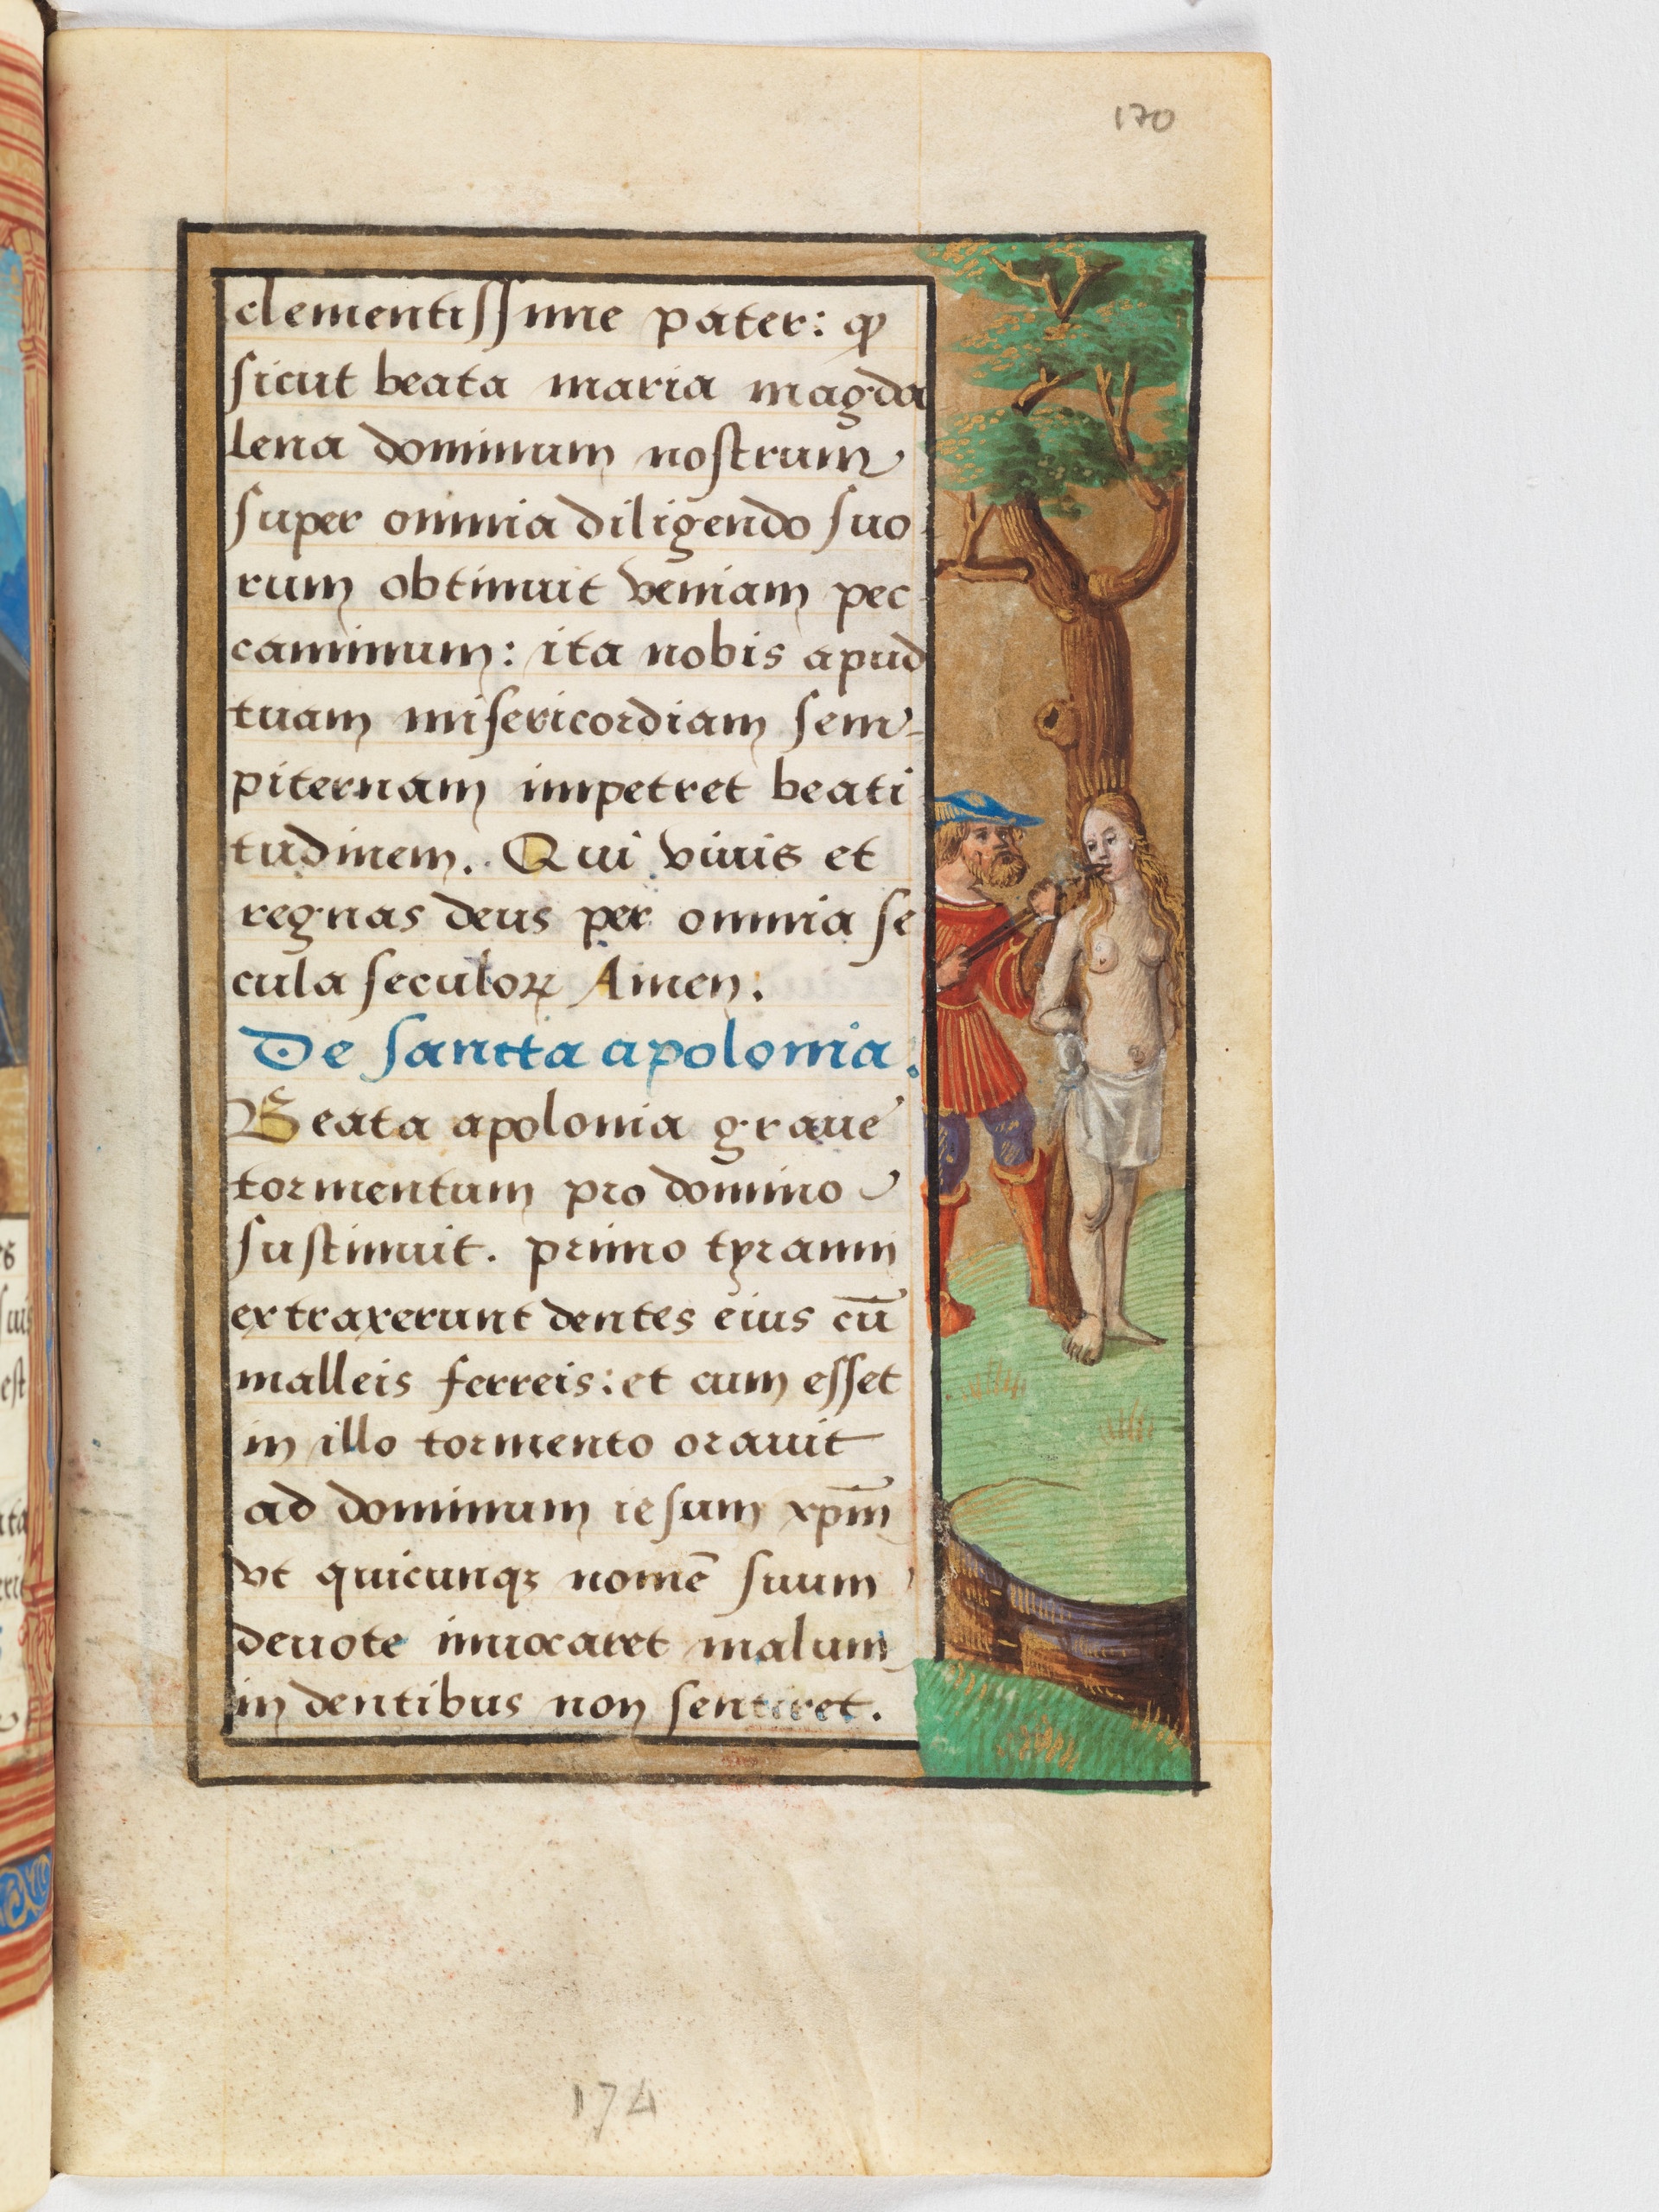 170
clementissime pater: ꝙ
sicut beata maria magda
lena dominum nostrum
super omnia diligendo suo
rum obtinuit veniam pec
caminum: ita nobis apud
tuam misericordiam sem-
piternam impetret beati
tudinem. Qui viuis et
regnas deus per omnia se
cula seculoꝝ Amen.
De sancta apolonia.
Beata apolonia graue
tormentum pro domino
sustinuit. primo tyranni
extraxerunt dentes eius cū
malleis ferreis: et cum esset
in illo tormento orauit
ad dominum iesum xp̄m
vt quicunqꝫ nomē suum
deuote inuocaret malum
in dentibus non sentiret.
174